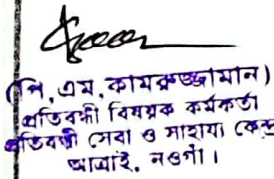 (পি, এম, কামরুজ্জামান)
প্রতিবন্ধী বিষয়ক কর্মকর্তা
প্রতিবন্ধী সেবা ও সাহায্য কেন্দ্র
আত্রাই, নওগাঁ।